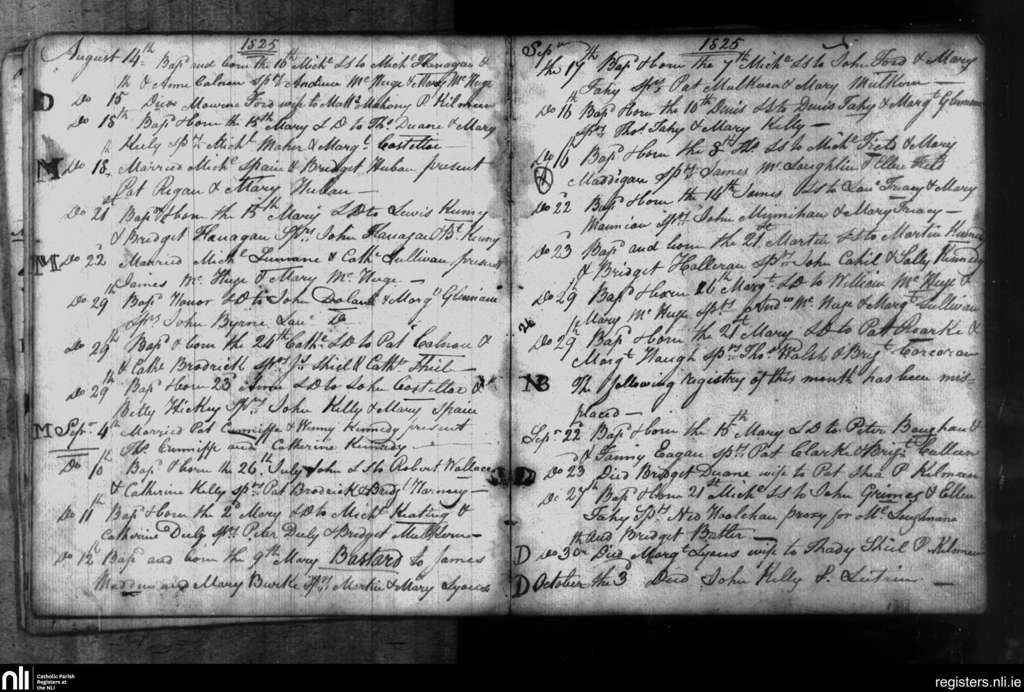 1825
August 14th Bapd and born the 10th Michl LS to Michl Flanagan &
& Anne Calnan Sprs Andrew Mc Huge & Mary Mc Huge
D Do 15 Died Mawrine Ford wife to Mahony P Kilmeen
Do 15th Bapd & born the 15th Mary LD to Thos Duane & Marg
Kiely Sprs Michl Maher & Margt Costelloe
M Do 18 Married Michl Spain & Bridget Huban present
Pat Regan & Mary
Do 21 Bapd & born the 15th Mary LD to Lewis Kenny
& Bridget Flanagan Sprs John Flanagan & Bt Kenny
M Do 22 Married Michl & Cathe Sullivan present
James Mc Huge & Mary Mc Huge
Do 29 Bapd Honor LD to John Dolan & Margt
Sprs John Byrne
Do 29th Bapd & born the 24th Cathe LD to Pat Calnan &
& Cathe Brodrick Sprs Js Shiel & Cathe Shiel
Do 29th Bapd & born 23 Anne LD to John Costelloe &
Betty Hickey Sprs John Kelly & Mary Spain
M Sepr 4th Married Pat Cunniffe & Winny Kennedy present
Thos Cunniffe and Catherine Kennedy
Do 10th Bapd & born the 26th July John LS to Robert Wallace
& Catherine Kelly Sprs Pat Brodrick & Bridgt
Do 11th Bapd & born the 2d Mary LD to Michl Keating &
Catherine Duly Sprs Peter Duly & Bridget
Do 12th Bapd and born the 9th Mary Bastard to James
Madden and Mary Burke Sprs Martin & Mary Lyons
1825
Sepr
the 17th Bapd & born the 7th Michl LS to John Ford & Mary
Fahy Sprs Pat Mulkern & Mary Mulkern
Do 16th Bapd & born the 10th Denis LS to Denis Fahy & Margt
Sprs Thos Fahy & Mary Kelly
Do 16 Bapd & born the 8th Thos LS to Michl & Mary
Maddigan Sprs James Mc Laughlin
Do 22 Bapd & born the 14th James LS to Treacy & Mary
Sprs John & Mary Treacy
Do 23 Bapd and born the 21st Martin LS to Martin
& Bridget Halleran Sprs John Cahil & Sally Kennedy
Do 29 Bapd & born 26 Margt LD to William Mc Huge &
Mary Mc Huge Sprs Mc Huge & Margt Sullivan
26
Do 29th Bapd & born the 21st Mary LD to Pat Roarke &
Margt Waugh Sprs Thos Walsh & Brigt Corcoran
NB The following registry of this month has been mis-
placed
Sepr 22 Bapd & born the 15th Mary LD to Peter &
Fanny Eagan Sprs Pat Clarke & Brigt
Do 23 Died Bridget Duane wife to Pat Shea P Kilmeen
Do 27th Bapd & born 21st Michl LS to John Grimes & Ellen
Fahy Sprs Ned Hoolehan proxy for Ml Loughnane
and Bridget Butler
D Do 30th Died Margt Lyons wife to Thady Shiel P Kilmeen
D October the 3d Died John Kelly P. Leitrim
nli
Catholic Parish
Registers at
the NLI
registers.nli.ie